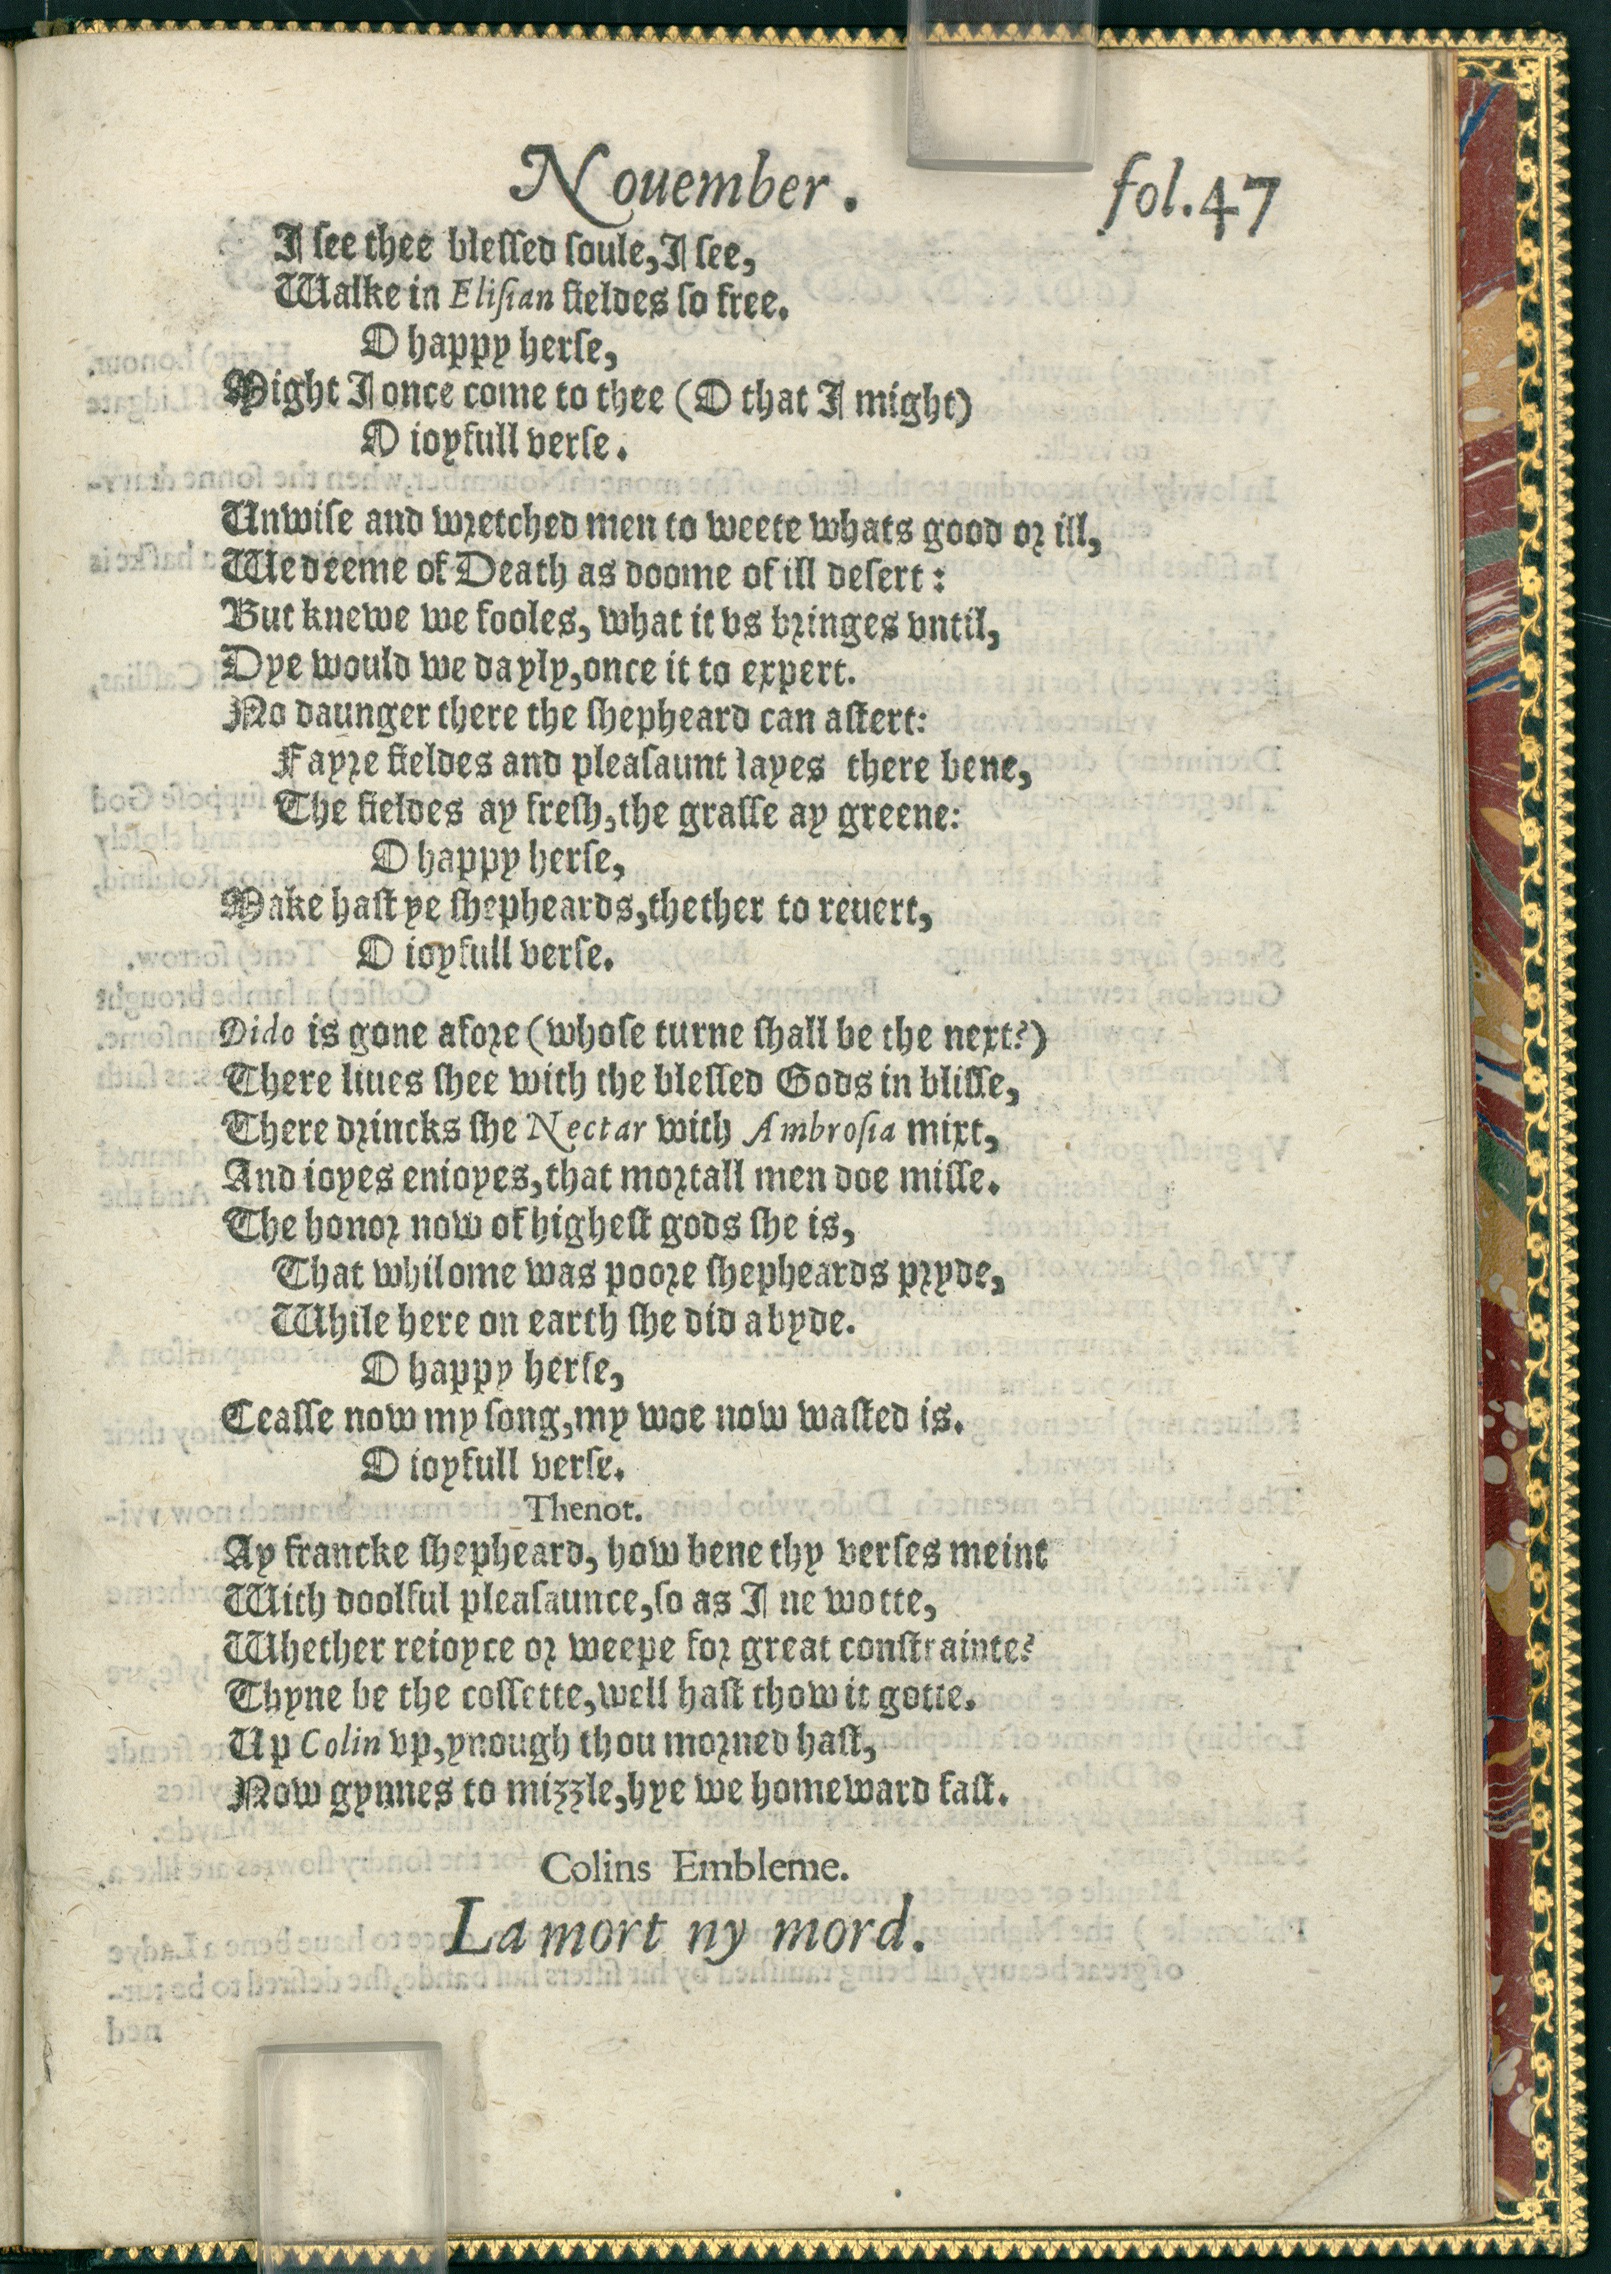 Nouember. fol.47
I ſee thee bleſſed ſoule, I ſee,
Walke in Eliſian fieldes ſo free.
O happy herſe,
Might I once come to thee (O that I might)
O ioyfull verſe.
Unwiſe and wretched men to weete whats good or ill,
We deeme of Death as doome of ill deſert:
But knewe we fooles, what it vs bringes vntil,
Dye would we dayly, once it to expert.
No daunger there the ſhepheard can aſtert:
Fayre fieldes and pleaſaunt layes there bene,
The fieldes ay freſh, the graſſe ay greene:
O happy herſe,
Make haſt ye ſhepheards, thether to reuert,
O ioyfull verſe.
Dido is gone afore (whoſe turne ſhall be the next?)
There liues ſhee with the bleſſed Gods in bliſſe,
There drincks ſhe Nectar with Ambroſia mixt,
And ioyes enioyes, that mortall men doe miſſe.
The honor now of higheſt gods ſhe is,
That whilome was poore ſhepheards pryde,
While here on earth ſhe did abyde.
O happy herſe,
Ceaſſe now my ſong, my woe now waſted is.
O ioyfull verſe.
Thenot.
Ay francke ſhepheard, how bene thy verſes meint
With doolful pleaſaunce, ſo as I ne wotte,
Whether reioyce or weepe for great conſtrainte?
Thyne be the coſſette, well haſt thow it gotte.
Up Colin vp, ynough thou morned haſt,
Now gynnes to mizzle, hye we homeward faſt.
Colins Embleme.
La mort ny mord.